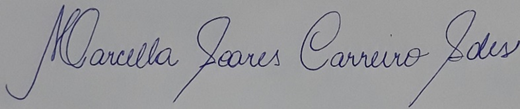 Marcella Soares Carreiro Sales